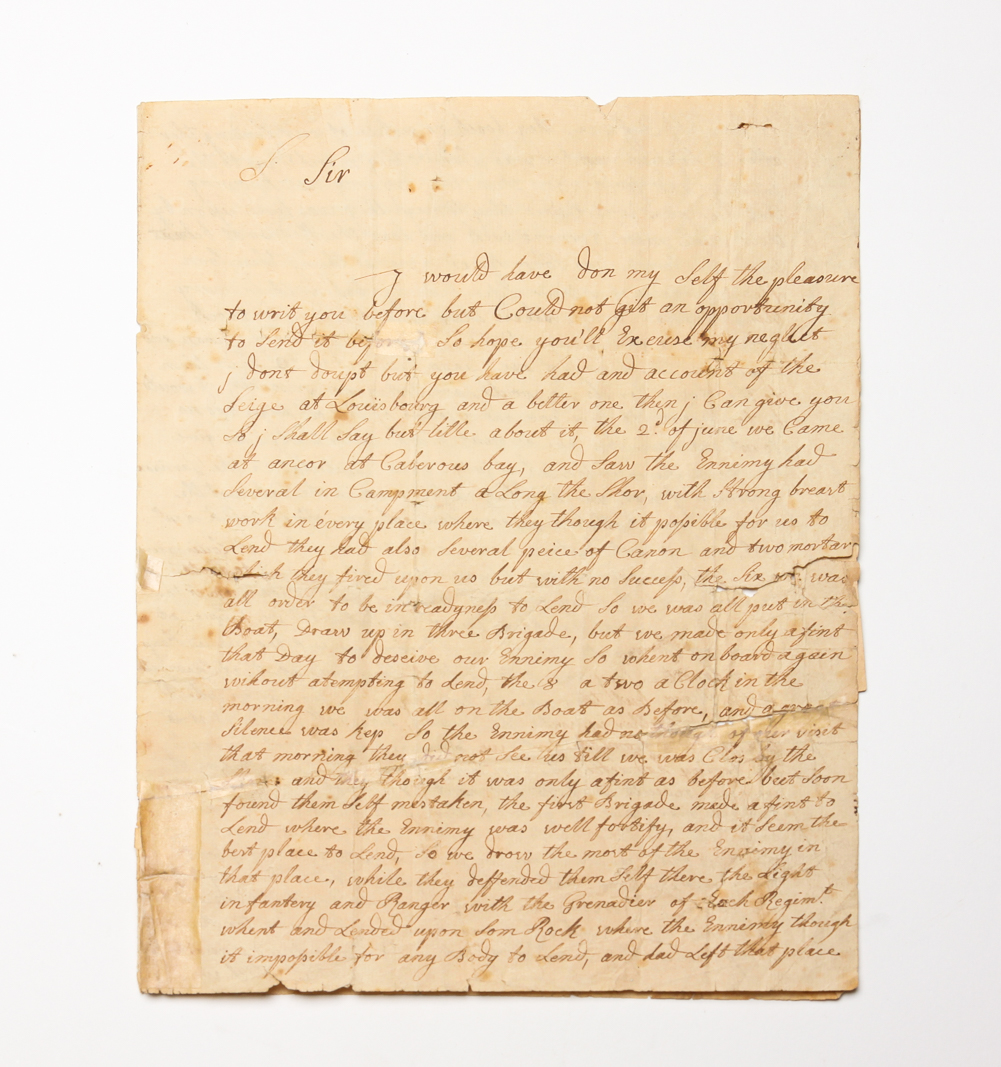 S. Sir
J would have don my Self the pleasure
to writ you before but Could not git an opportunity
to Send it before So hope you'll Excuse my neglect
j dont doupt but you have had and account of the
Seige at Louisbourg and a better one then j Can give you
So j Shall Say but litle about it, the 2d. of june we Came
at ancor at Caberous bay, and Saw the Ennimy had
Several in Campment a Long the Shor, with Strong breast
work in every place where they though it possible for us to
Lend they had also Several peice of Canon and two mortar
which they fired upon us but with no Success, the Six we was
all order to be in readyness to Lend So we was all put in the
Boat, Draw up in three Brigade, but we made only a fint
that Day to deseive our Ennimy So whent on board again
wihout atempting to Lend, the 8 a two a Clock in the
morning we was all on the Boat as Before, and a great
Silence was kep So the Ennimy had no of our visit
that morning they did not See us till we was Clos by the
and they though it was only a fint as before beet Soon
found them Self mistaken, the first Brigade made a fint to
Lend where the Ennimy was well fortify, and it Seem the
best place to Lend, So we drow the most of the Ennimy in
that place, while they deffended them Self there the Light
infantery and Ranger with the Grenadier of Each Regimt.
whent and Lended upon Som Rock where the Ennimy though
it impossible for any Body to Lend, and had Left that place